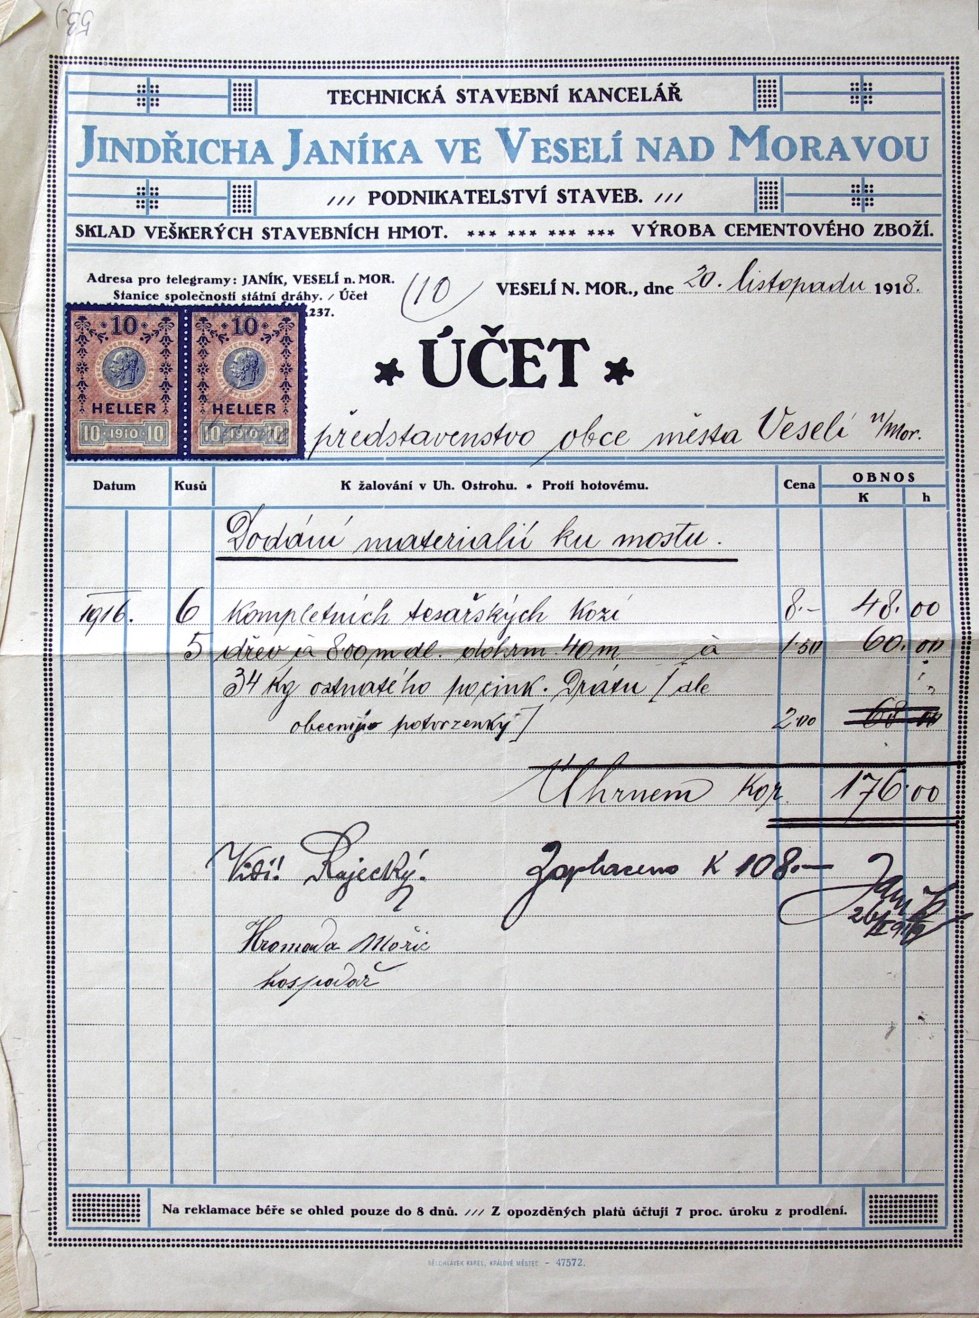 53)
TECHNICKÁ STAVEBNÍ KANCELÁŘ
JINDŘICHA JANÍKA VE VESELÍ NAD MORAVOU
/// PODNIKATELSTVÍ STAVEB. ///
SKLAD VEŠKERÝCH STAVEBNÍCH HMOT. *** *** *** *** VÝROBA CEMENTOVÉHO ZBOŽÍ.
Adresa pro telegramy: JANÍK, VESELÍ n. MOR.
Stanice společnosti státní dráhy. / Účet
237.
(10)
VESELÍ N. MOR., dne 20. listopadu 1918.
* ÚČET *
10 10
HELLER HELLER
10 1910 10 10 1910 10
představenstvo obce města Veselí n/Mor.
Datum Kusů K žalování v Uh. Ostrohu. * Proti hotovému. Cena OBNOS
K h
Dodání materialií ku mostu.
1916. 6 kompletních tesařských kozí 8.- 48.00
5 dřev à 8.00 m dl. 40 m à 1.50 60.00
34 kg ostnatého pocink. Drátu [dle
potvrzenky] 2.00 68.00
Uhrnem Kor. 176.00
Vidi! Rajecký.
Zaplaceno K 108.—
Janík
Hromada Mořic
hospodář
Na reklamace béře se ohled pouze do 8 dnů. /// Z opozděných platů účtují 7 proc. úroku z prodlení.
BĚLOHLÁVEK KAREL, KRÁLOVÉ MĚSTEC - 47572.